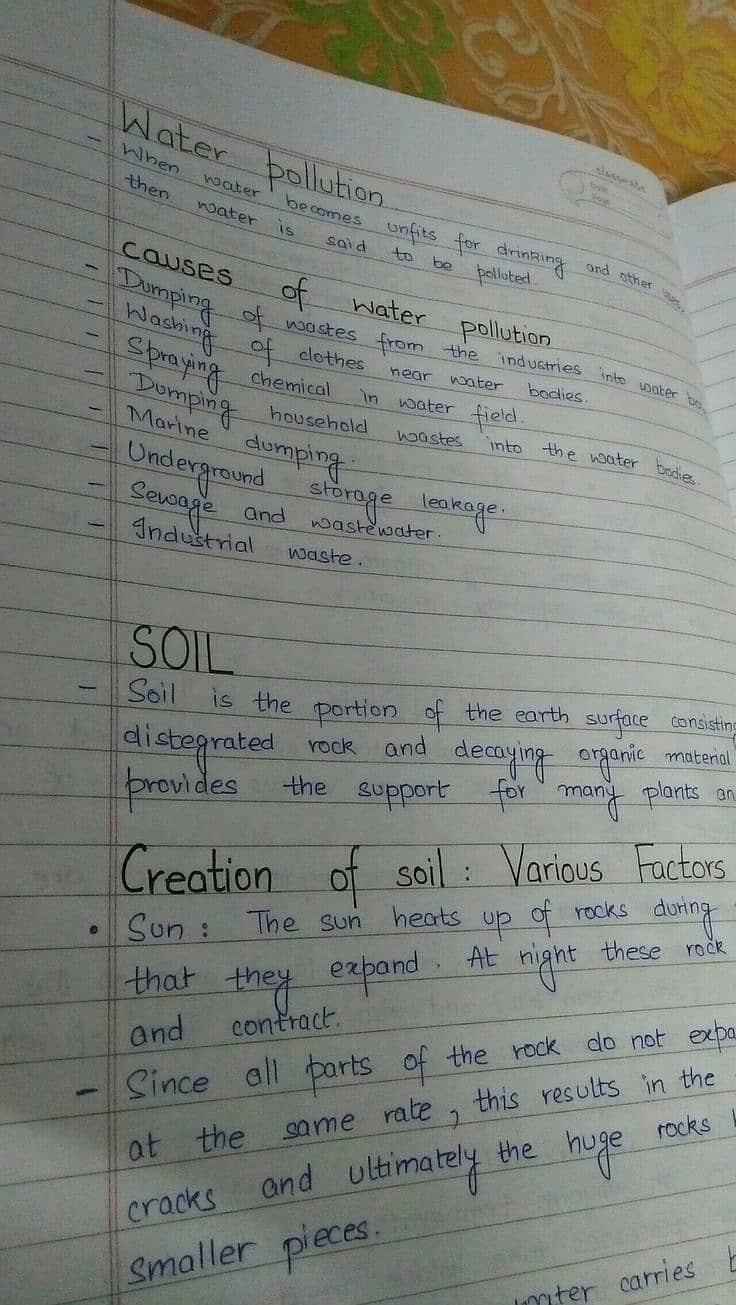 classmate
Date
Page
Water pollution
- When water becomes unfits for drinking and other uses,
then water is said to be polluted.
causes of water pollution
- Dumping of wastes from the industries into water bo
- Washing of clothes near water bodies.
- Spraying chemical in water field.
- Dumping household wastes into the water bodies.
- Marine dumping.
- Underground storage leakage.
- Sewage and wastewater.
- Industrial waste.
SOIL
- Soil is the portion of the earth surface consisting
distegrated rock and decaying organic material
provides the support for many plants an
Creation of soil : Various Factors
• Sun : The sun heats up of rocks during
that they expand. At night these rock
and contract.
- Since all parts of the rock do not expa
at the same rate, this results in the
cracks and ultimately the huge rocks
smaller pieces.
water carries